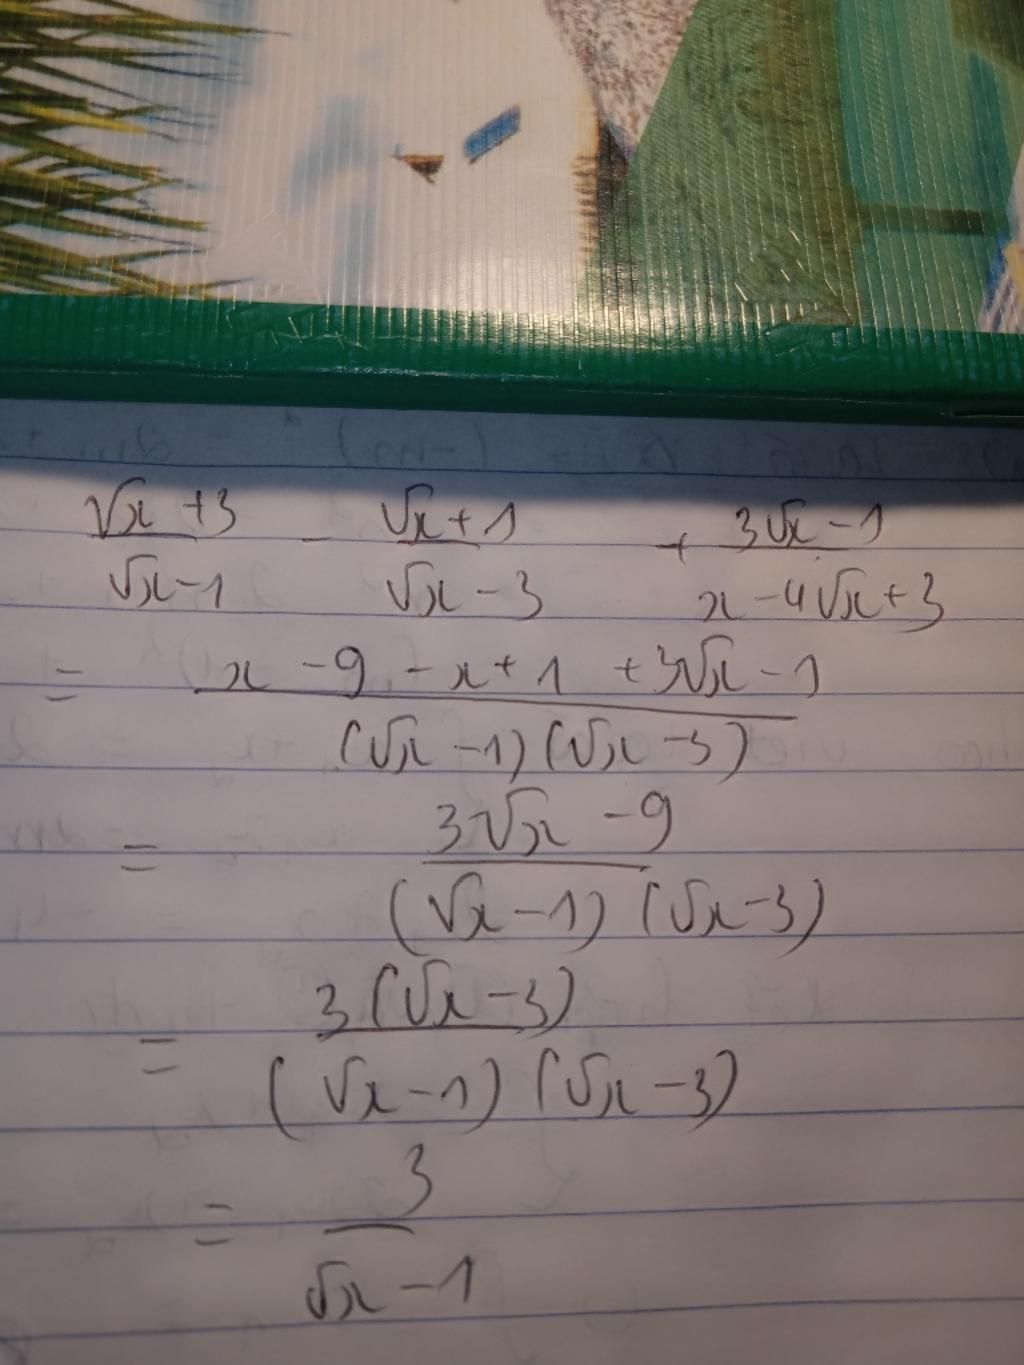 √x +3 / √x-1 - √x+1 / √x-3 + 3√x-1 / x-4√x+3
= x-9-x+1+3√x-1 / (√x-1)(√x-3)
= 3√x-9 / (√x-1)(√x-3)
= 3(√x-3) / (√x-1)(√x-3)
= 3 / √x-1